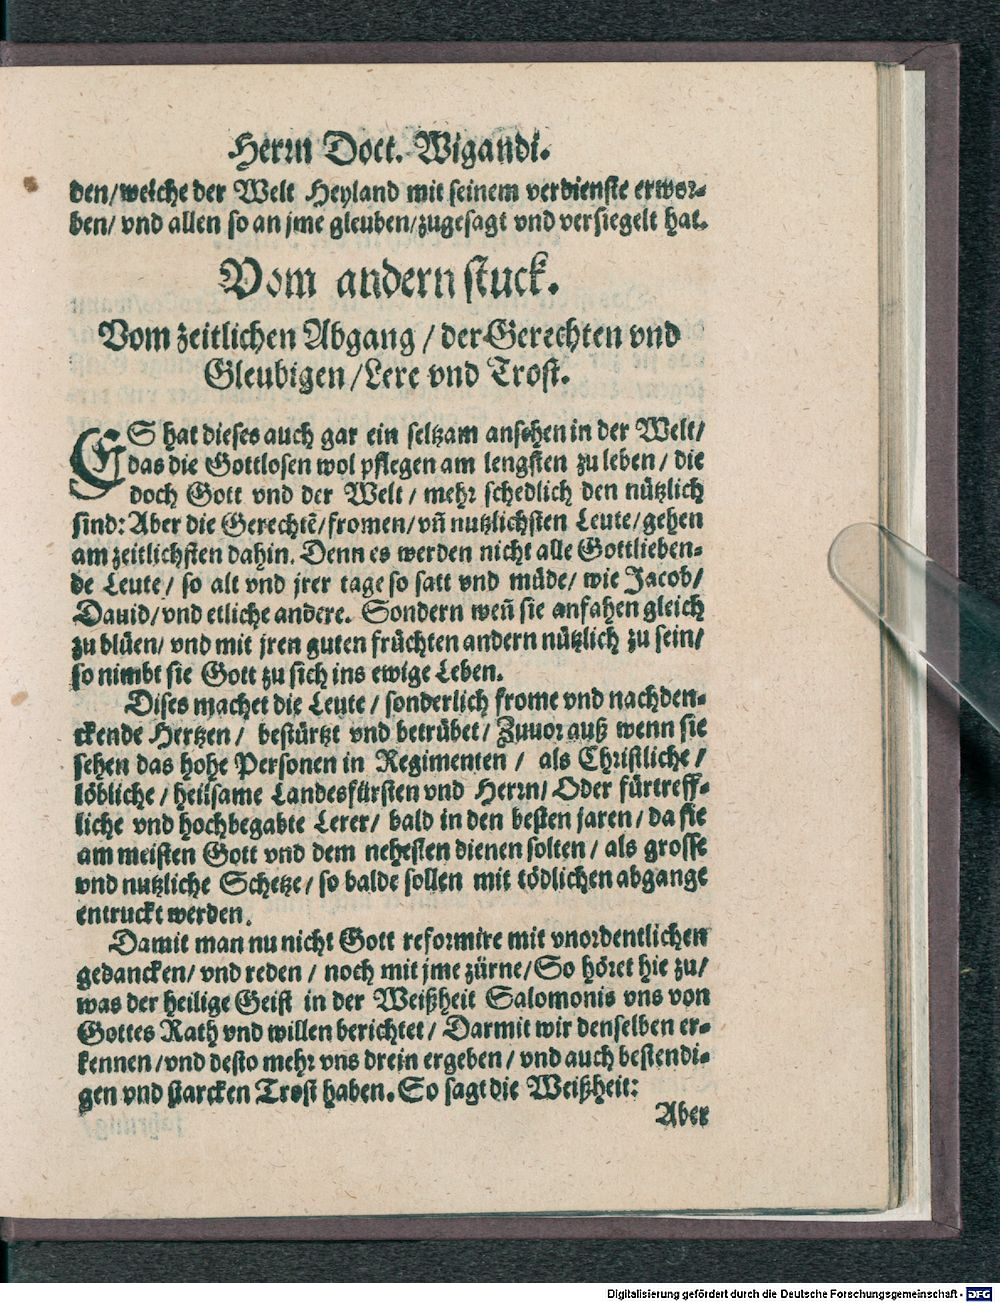 Herrn Doct. Wigandi.
den/welche der Welt Heyland mit seinem verdienste erwor-
ben/ vnd allen so an jme gleuben/zugesagt vnd versiegelt hat.
Vom andern stuck.
Vom zeitlichen Abgang / der Gerechten vnd
Gleubigen /Lere vnd Trost.
ES hat dieses auch gar ein seltzam ansehen in der Welt/
das die Gottlosen wol pflegen am lengsten zu leben / die
doch Gott vnd der Welt / mehr schedlich den nützlich
sind: Aber die Gerechtẽ/fromen/vñ nutzlichsten Leute/gehen
am zeitlichsten dahin. Denn es werden nicht alle Gottlieben-
de Leute/ so alt vnd jrer tage so satt vnd müde/ wie Jacob/
Dauid/vnd etliche andere. Sondern weñ sie anfahen gleich
zu blüen/ vnd mit jren guten früchten andern nützlich zu sein/
so nimbt sie Gott zu sich ins ewige Leben.
Dises machet die Leute / sonderlich frome vnd nachden-
ckende Hertzen / bestürtzt vnd betrübet/ Zuuor auß wenn sie
sehen das hohe Personen in Regimenten / als Christliche /
löbliche / heilsame Landesfürsten vnd Herrn/ Oder fürtreff-
liche vnd hochbegabte Lerer/ bald in den besten jaren / da sie
am meisten Gott vnd dem nehesten dienen solten / als grosse
vnd nutzliche Schetze/ so balde sollen mit tödlichen abgange
entruckt werden.
Damit man nu nicht Gott reformire mit vnordentlichen
gedancken/ vnd reden / noch mit jme zürne/ So höret hie zu/
was der heilige Geist in der Weißheit Salomonis vns von
Gottes Rath vnd willen berichtet/ Darmit wir denselben er-
kennen /vnd desto mehr vns drein ergeben / vnd auch bestendi-
gen vnd starcken Trost haben. So sagt die Weißheit:
Aber
Digitalisierung gefördert durch die Deutsche Forschungsgemeinschaft - DFG